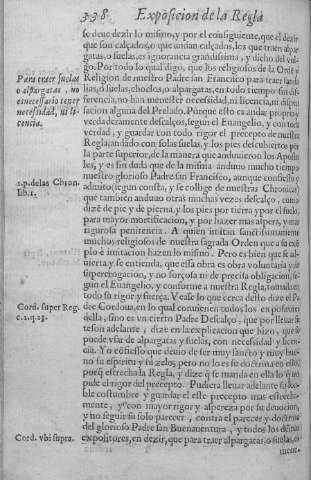 338 Exposicion de la Regla
se deue dezir lo mismo, y por el consiguiente, que el dezir
que son calçados, o que andan calçados, los que traen alpar
gatas, o suelas, es ignorancia grandissima, y dicho del vul-
go. Por todo lo qual digo, que los religiosos de la Ordē y
Para tener suelas
o alpargatas, no
es necessario tener
necessidad, ni li-
cencia.
Religion de nuestro Padre san Francisco para traer sandá
lias, ò suelas, choclos, o alpargatas, en todo tiempo sin di-
ferencia, no han menester necessidad, ni licencia, ni dispen
sacion alguna del Prelado. Porque esto es andar propria, y
verdaderamente descalços, segun el Euangelio, y con toda
verdad, y guardar con todo rigor el precepto de nuestra
Regla, andado con solas suelas, y los pies descubiertos por
la parte superior, de la manera que anduuieron los Aposto
les, y es sin duda que de la misma anduuo mucho tiempo
1.p. de las Chron.
lib.1.
nuestro glorioso Padre san Francisco, aunque confiesso y
admito (segun consta, y se collige de nuestras Chronicas)
que tambien anduuo otras muchas vezes descalço, como
dizē de pie y de pierna, y los pies por tierra y por el suelo,
para mayor mortificacion, y por hazer mas aspera, y mas
rigurosa penitencia. A quien imitan sanctissimamente
muchos religiosos de nuestra sagrada Orden que a su exē
plo è imitacion hazen lo mismo. Pero es bien que se ad-
uierta y se entienda, que essa obra es obra voluntaria y de
supererogacion, y no forçosa ni de precisa obligacion, se-
gun el Euangelio, y conforme a nuestra Regla, tomada en
todo su rigor y fuerça. Vease lo que cerca desto dize el Pa
Cord. super Reg.
c.2.q.23.
dre Cordoua, en lo qual conuienen todos los expositores
della, sino es vn cierto Padre Descalço, que por lleuar su
teson adelante, dize en la explicacion que hizo, que se
puede vsar de alpargatas y suelas, con necessidad y licen-
cia. Yo confiesso que deuio de ser muy sancto y muy bue-
no su espiritu y su zelo, pero no lo es su doctrina en esso,
porq̄ estrecha la Regla, y dize q̄ se manda en ella lo q̄ no
pide el rigor del precepto. Pudiera lleuar adelante su loa-
ble costumbre y guardar el este precepto mas estrecha-
mente, y con mayor rigor y aspereza por su deuocion,
y no seguir su solo parecer, contra el parecer y doctrina
del glorioso Padre san Buenauentura, y todos los demas
Cord. vbi supra.
expositores, en dezir, que para traer alpargatas, o suelas, es
menes-